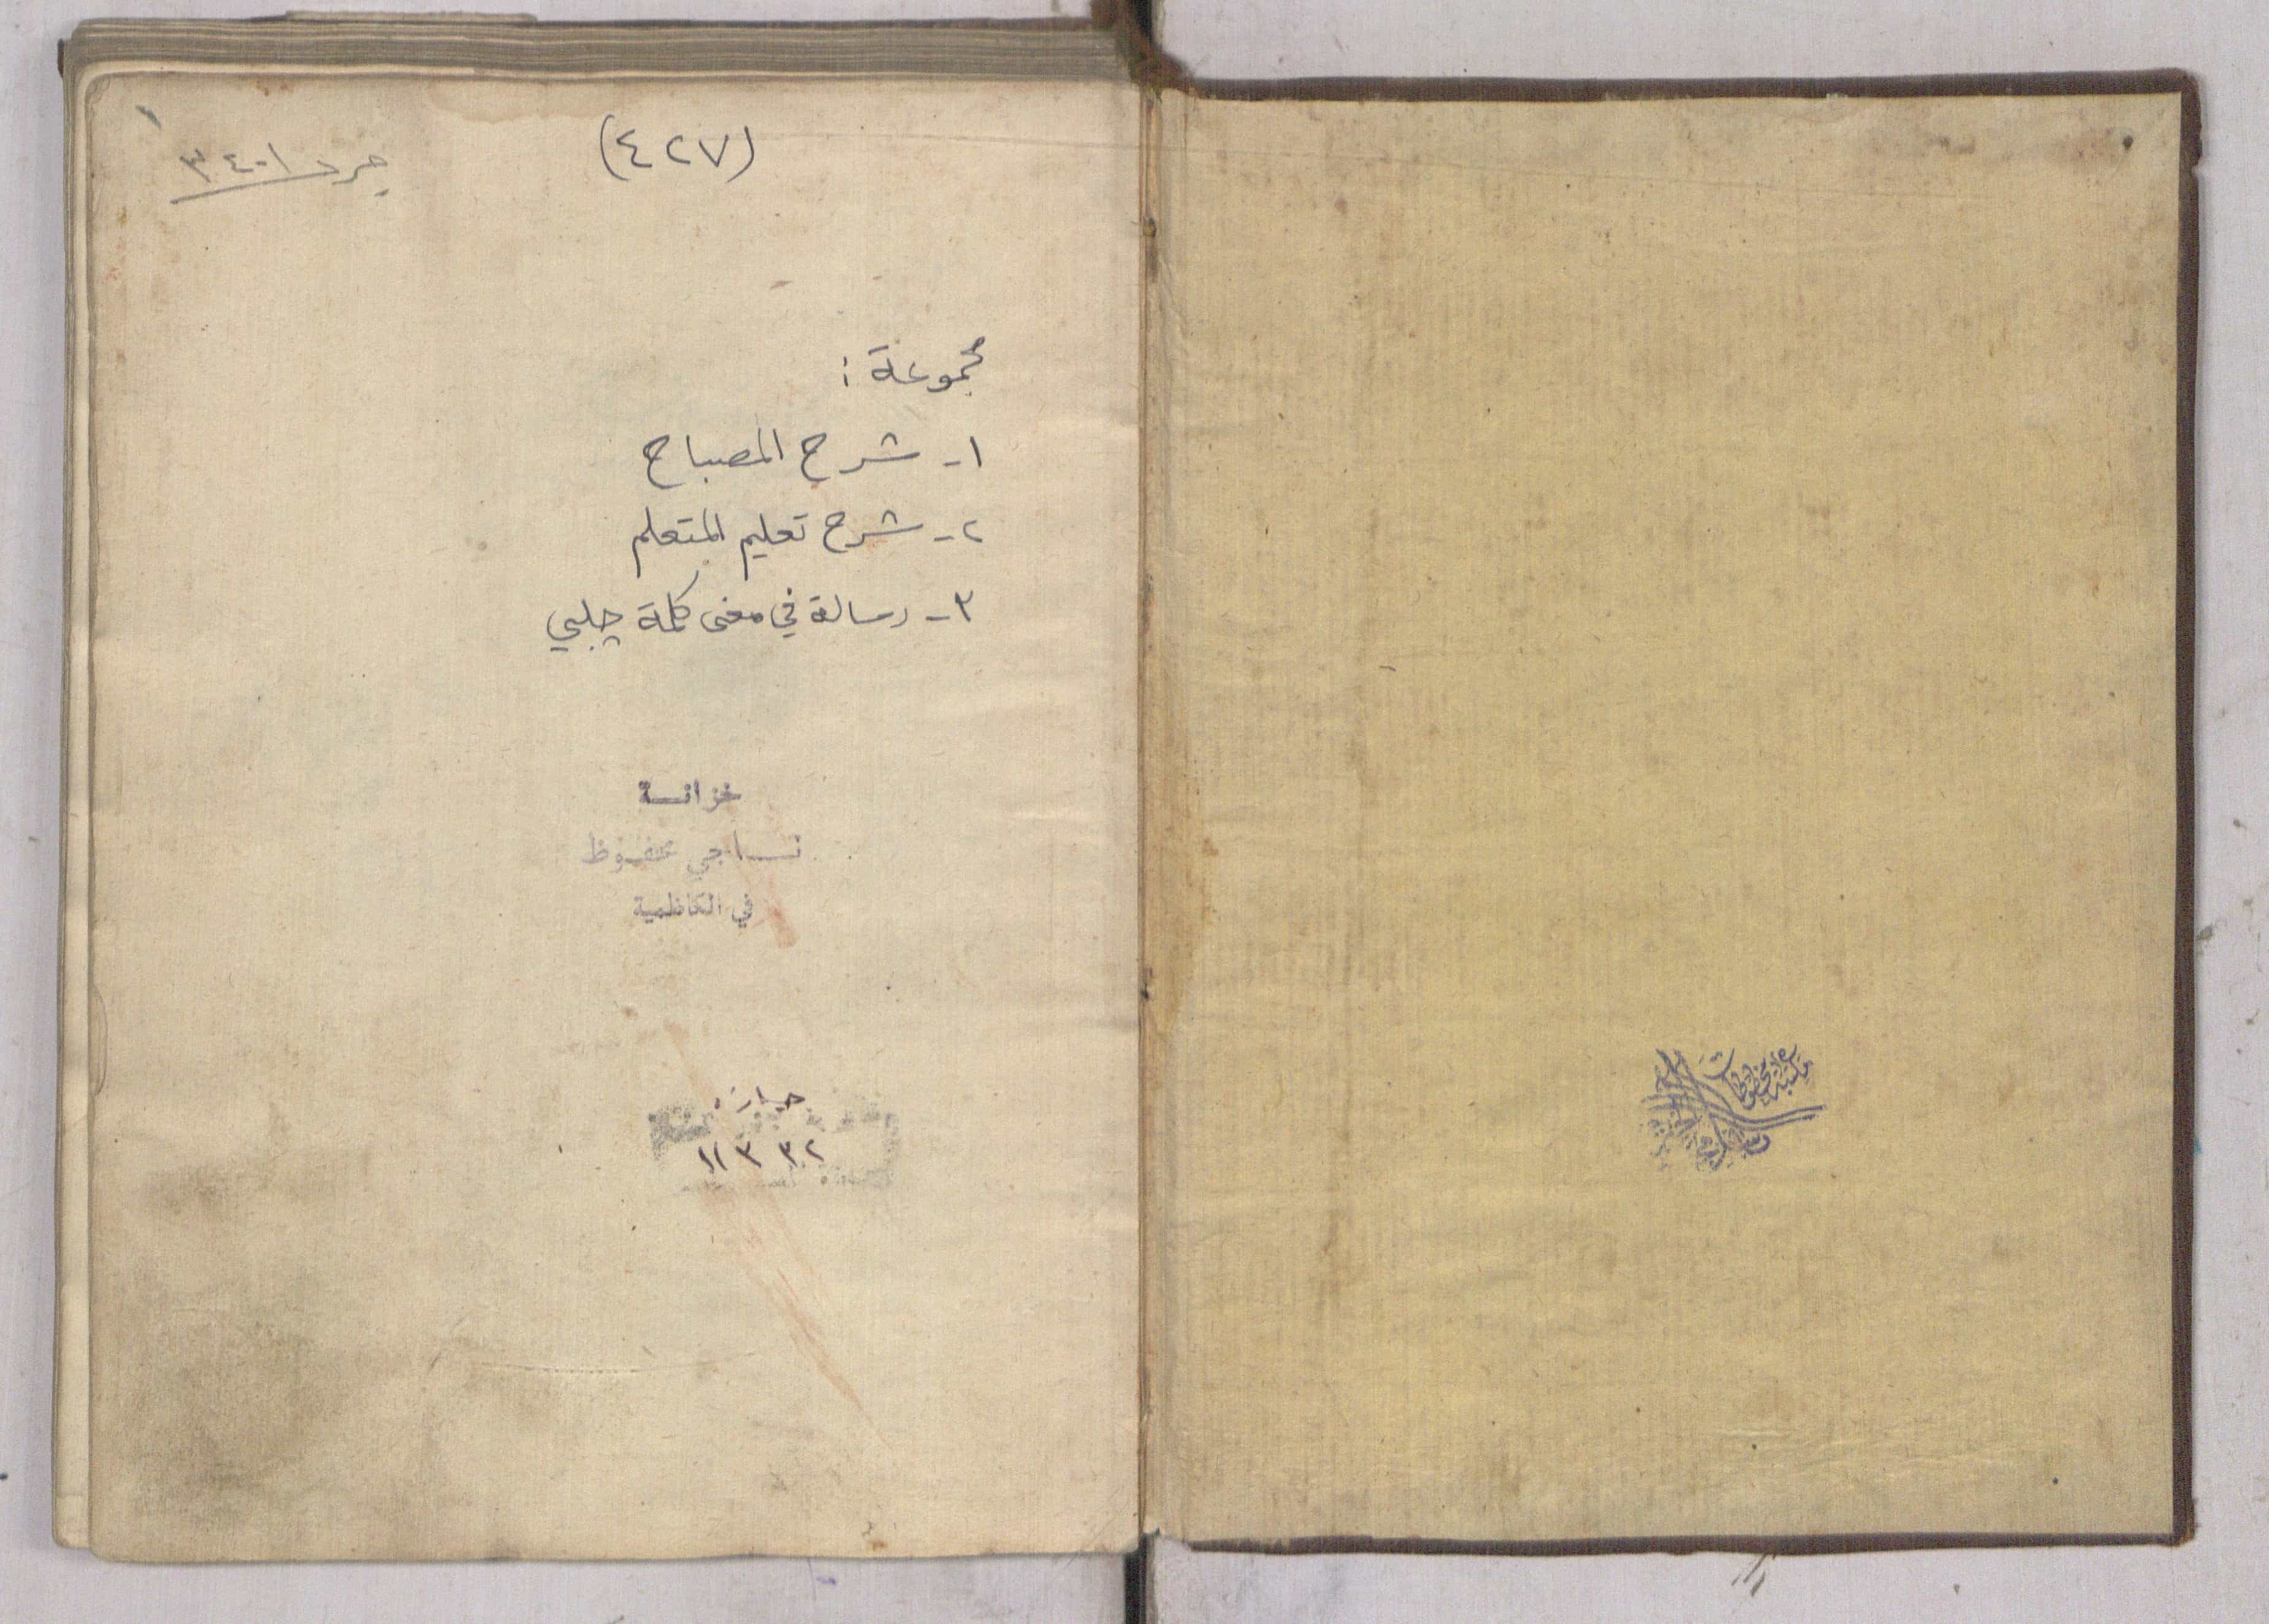 (٤٢٧)
جرد ٣٤٠١
مجموعة :
١- شرح المصباح
٢- شرح تعليم المتعلم
٣- رسالة في معنى كلمة چلبي
خزانة
ناجي محفوظ
في الكاظمية
حيازة
١١٣٣٢